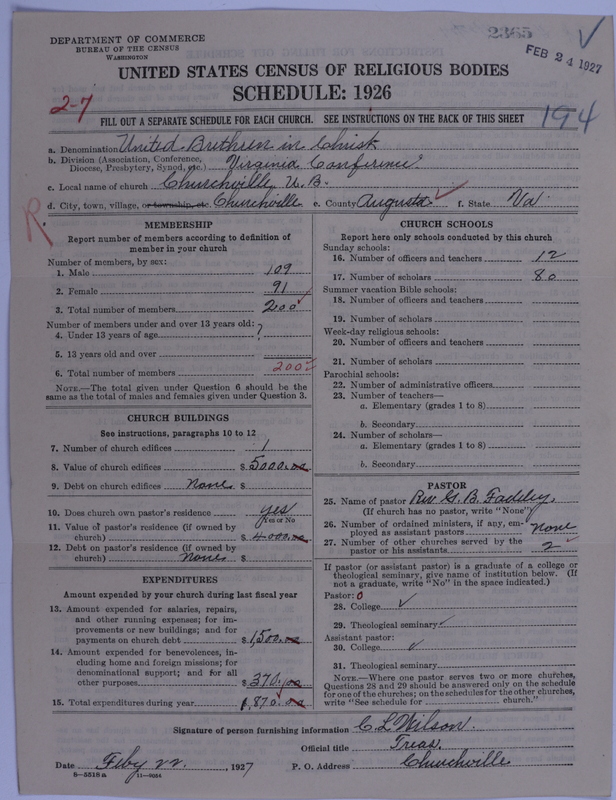 2365
FEB 24 1927
DEPARTMENT OF COMMERCE
BUREAU OF THE CENSUS
WASHINGTON
UNITED STATES CENSUS OF RELIGIOUS BODIES
SCHEDULE: 1926
2-7
194
FILL OUT A SEPARATE SCHEDULE FOR EACH CHURCH. SEE INSTRUCTIONS ON THE BACK OF THIS SHEET
a. Denomination United Brethren in Christ
b. Division (Association, Conference, Diocese, Presbytery, Synod, etc.) Virginia Conference
c. Local name of church Churchville, U.B.
d. City, town, village, or township, etc. Churchville e. County Augusta f. State Va
R.
MEMBERSHIP
Report number of members according to definition of
member in your church
Number of members, by sex:
1. Male 109
2. Female 91
3. Total number of members 200
Number of members under and over 13 years old:
4. Under 13 years of age ?
5. 13 years old and over
6. Total number of members 200
NOTE.—The total given under Question 6 should be the
same as the total of males and females given under Question 3.
CHURCH BUILDINGS
See instructions, paragraphs 10 to 12
7. Number of church edifices 1
8. Value of church edifices $ 5000.00
9. Debt on church edifices None $
10. Does church own pastor's residence yes
Yes or No
11. Value of pastor's residence (if owned by
church) $ 4000.00
12. Debt on pastor's residence (if owned by
church) None $
EXPENDITURES
Amount expended by your church during last fiscal year
13. Amount expended for salaries, repairs,
and other running expenses; for im-
provements or new buildings; and for
payments on church debt $ 1,500.00
14. Amount expended for benevolences, in-
cluding home and foreign missions; for
denominational support; and for all
other purposes $ 370.00
15. Total expenditures during year $1,870.00
CHURCH SCHOOLS
Report here only schools conducted by this church
Sunday schools:
16. Number of officers and teachers 12
17. Number of scholars 80
Summer vacation Bible schools:
18. Number of officers and teachers
19. Number of scholars
Week-day religious schools:
20. Number of officers and teachers
21. Number of scholars
Parochial schools:
22. Number of administrative officers
23. Number of teachers—
a. Elementary (grades 1 to 8)
b. Secondary
24. Number of scholars—
a. Elementary (grades 1 to 8)
b. Secondary
PASTOR
25. Name of pastor Rev G. B. Fadeley
(If church has no pastor, write "None")
26. Number of ordained ministers, if any, em-
ployed as assistant pastors none
27. Number of other churches served by the
pastor or his assistants 2
If pastor (or assistant pastor) is a graduate of a college or
theological seminary, give name of institution below. (If
not a graduate, write "No" in the space indicated.)
Pastor: 0
28. College
29. Theological seminary
Assistant pastor:
30. College
31. Theological seminary
NOTE.—Where one pastor serves two or more churches,
Questions 28 and 29 should be answered only on the schedule
for one of the churches; on the schedules for the other churches,
write "See schedule for church."
Signature of person furnishing information C. L. Wilson
Official title Treas.
Date Feby 22, 1927 P. O. Address Churchville
8—5518a 11—9034